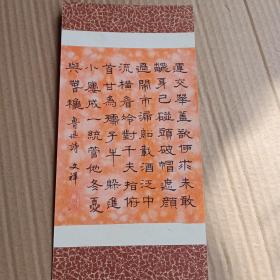 運交華蓋欲何求未敢
翻身已碰頭破帽遮顏
過鬧市漏船載酒泛中
流橫眉冷對千夫指俯
首甘為孺子牛躲進
小樓成一統管他冬夏
與春秋 魯迅詩 文祥